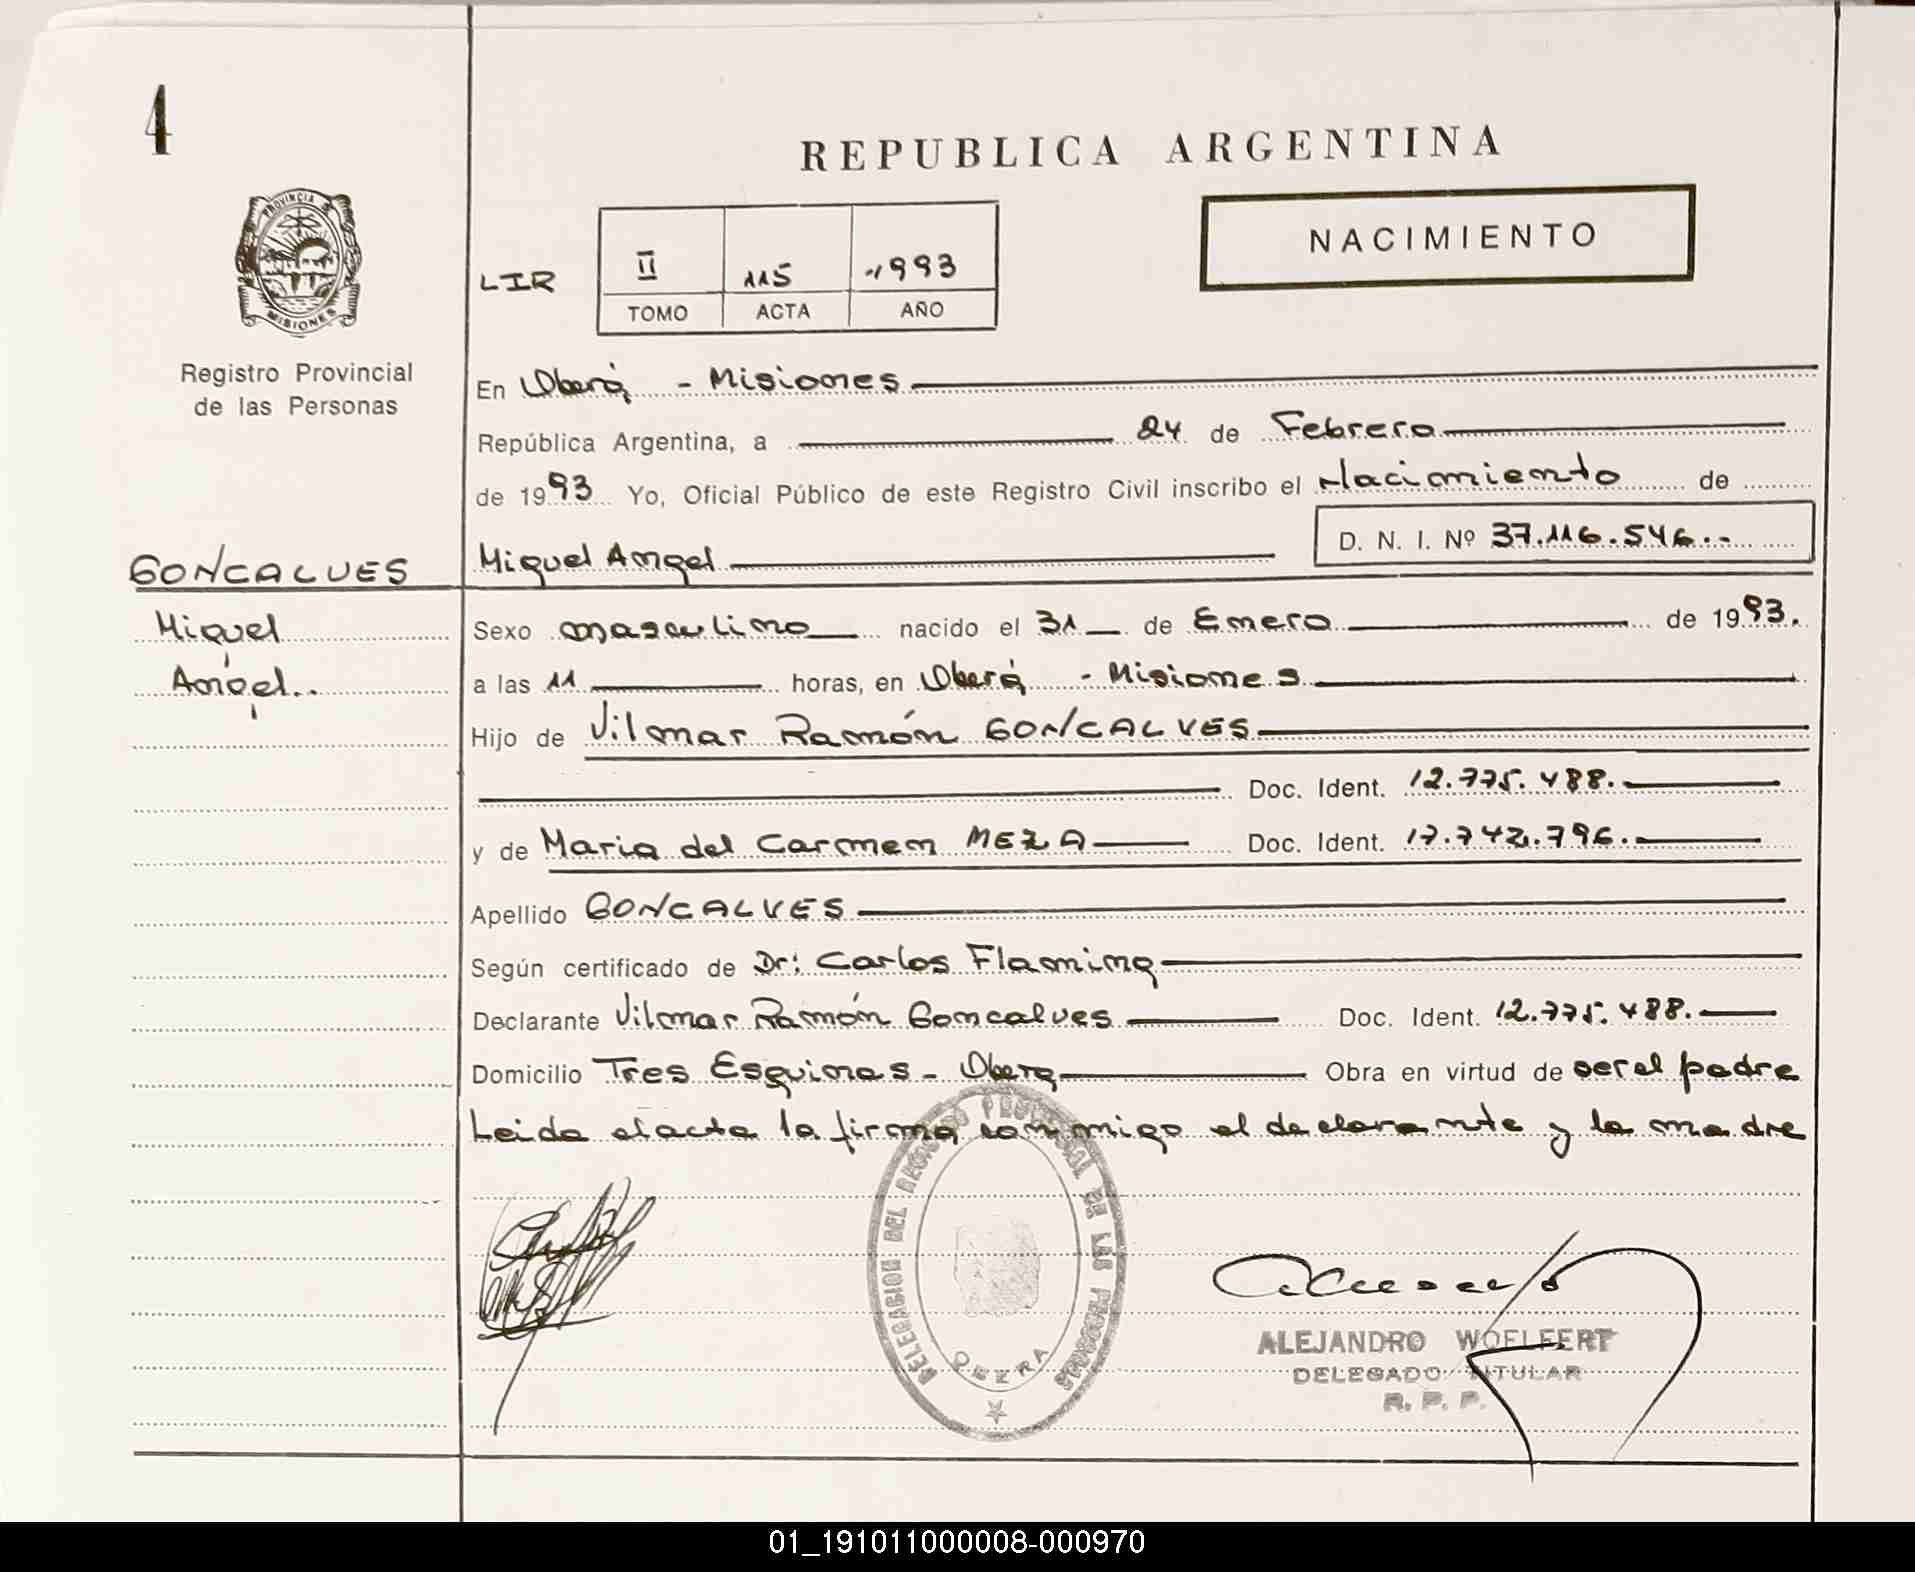 4
REPUBLICA ARGENTINA
PROVINCIA DE
MISIONES
NACIMIENTO
LIR II 115 1993
TOMO ACTA AÑO
Registro Provincial
de las Personas
En Oberá - Misiones
República Argentina, a 24 de Febrero
de 1993 Yo, Oficial Público de este Registro Civil inscribo el Nacimiento de
GONCALVES
Miguel Angel D. N. I. Nº 37.116.546.-
Miguel
Angel..
Sexo masculino nacido el 31 de Enero de 1993.
a las 11 horas, en Oberá - Misiones
Hijo de Vilmar Ramón GONCALVES
Doc. Ident. 12.775.488.
y de Maria del Carmen MEZA Doc. Ident. 17.742.796.
Apellido GONCALVES
Según certificado de Dr: Carlos Flaming
Declarante Vilmar Ramón Goncalves Doc. Ident. 12.775.488.
Domicilio Tres Esquinas - Obera Obra en virtud de ser el padre
Leida el acta la firma conmigo el declarante y la madre
DELEGACION DEL REGISTRO PROVINCIAL DE LAS PERSONAS
OBERA
ALEJANDRO WOELFERT
DELEGADO TITULAR
R. P. P.
01_191011000008-000970